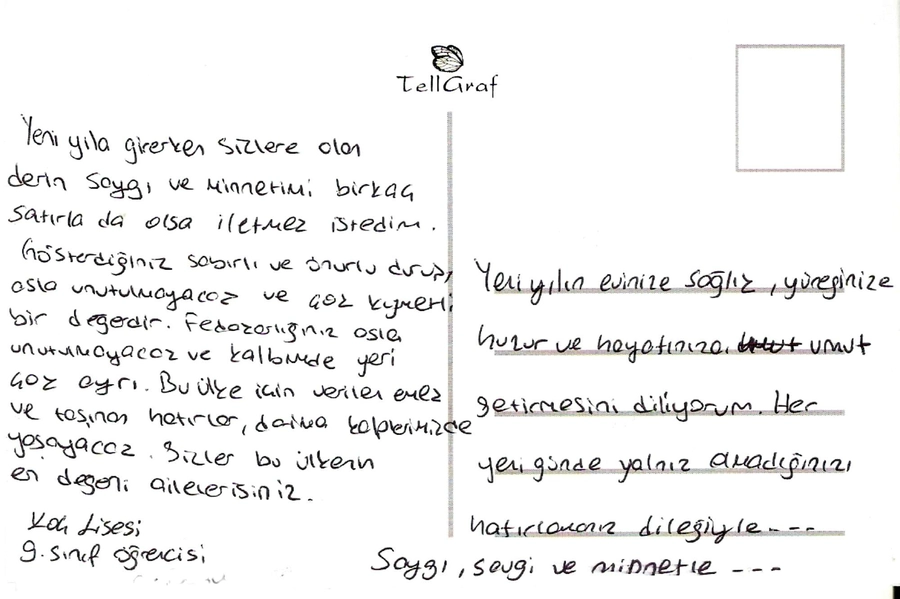 TellGraf
Yeni yıla girerken sizlere olan
derin saygı ve minnetimi birkaç
satırla da olsa iletmek istedim.
Gösterdiğiniz sabırlı ve onurlu duruş,
asla unutulmayacak ve çok kıymetli
bir değerdir. Fedakarlığınız asla
unutulmayacak ve kalbimde yeri
çok ayrı. Bu ülke için verilen emek
ve taşınan hatırlar, daima kalplerimizde
yaşayacak. Sizler bu ülkenin
en değerli ailelerisiniz.
Koç Lisesi
9. sınıf öğrencisi
Yeni yılın evinize sağlık, yüreğinize
huzur ve hayatınıza umut
getirmesini diliyorum. Her
yeni günde yalnız olmadığınızı
hatırlamanız dileğiyle----
Saygı, sevgi ve minnetle ---